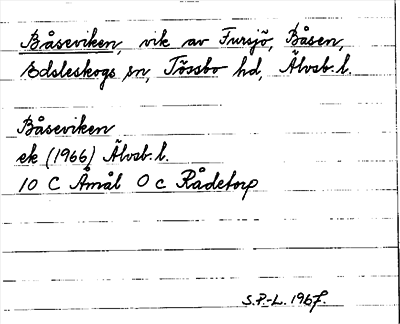 Båseviken, vik av Fursjö, Båsen,
Ödsleskogs sn, Tössbo hd, Älvsb. l.
Båseviken
ek (1966) Älvsb. l.
10 C Åmål 0 c Rådetorp
S.P.-L. 1967.